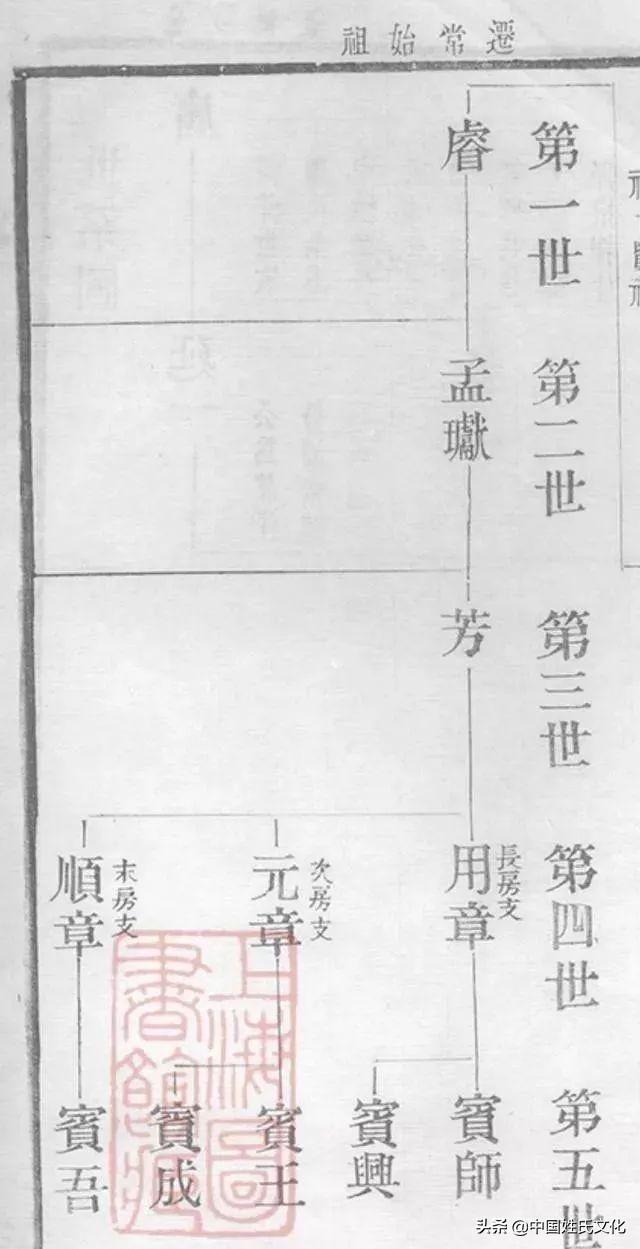 遷常始祖
第一世
睿
第二世
孟瓛
第三世
芳
第四世
長房支
用章
次房支
元章
末房支
順章
第五世
賓師
賓興
賓王
賓成
賓吾
上海圖書館藏
头条 @中国姓氏文化